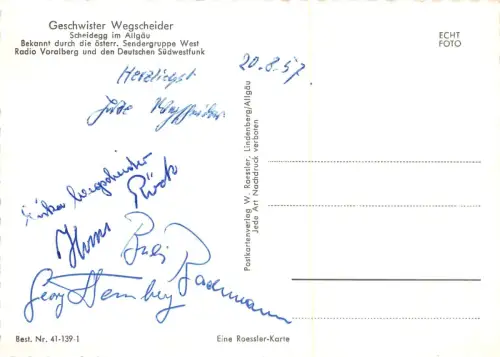 Geschwister Wegscheider
Scheidegg im Allgäu
Bekannt durch die österr. Sendergruppe West
Radio Voralberg und den Deutschen Südwestfunk
ECHT
FOTO
20.8.57
Herzlichst
Wegscheider
Hans
Bachmann
Georg
Postkartenverlag W. Roessler, Lindenberg/Allgäu
Jede Art Nachdruck verboten
Best. Nr. 41-139-1
Eine Roessler-Karte